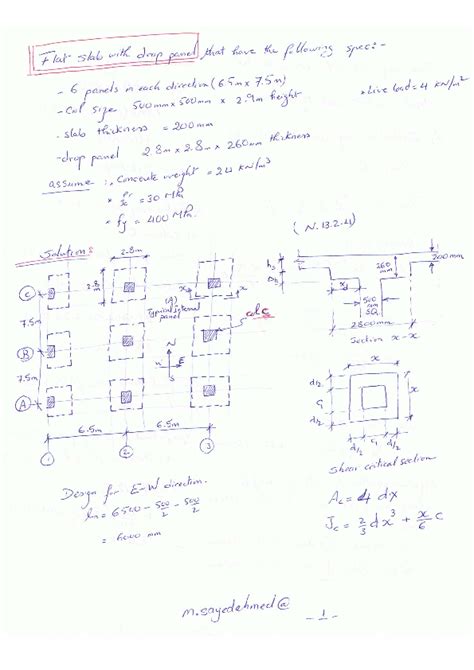 Flat slab with drop panel that have the following spec:-
- 6 panels in each direction (6.5m x 7.5m)
- Col size 500mm x 500mm x 2.9m height
* Live load = 4 KN/m²
- slab thickness = 200mm
- drop panel 2.8m x 2.8m x 260mm thickness
assume :. Concrete weight = 24 KN/m³
* = 30 MPa
* fy = 400 MPa
(N.13.2.4)
Solutions
2.8m
2.8m
C
7.5m
B
7.5m
A
(A)
Typical internal panel
x x
col C
N
E
S
6.5m 6.5m
1 2 3
260 mm
200mm
500 mm SQ.
2800mm
Section x-x
x
d/2
C1
d/2
x
d/2 C1 d/2
Shear critical section
Design for E-W direction.
ln = 6500 - 500/2 - 500/2
= 6000 mm
Ac = 4 dx
Jc = 2/3 dx³ + x/6 c
m.sayedahmed@
-1-